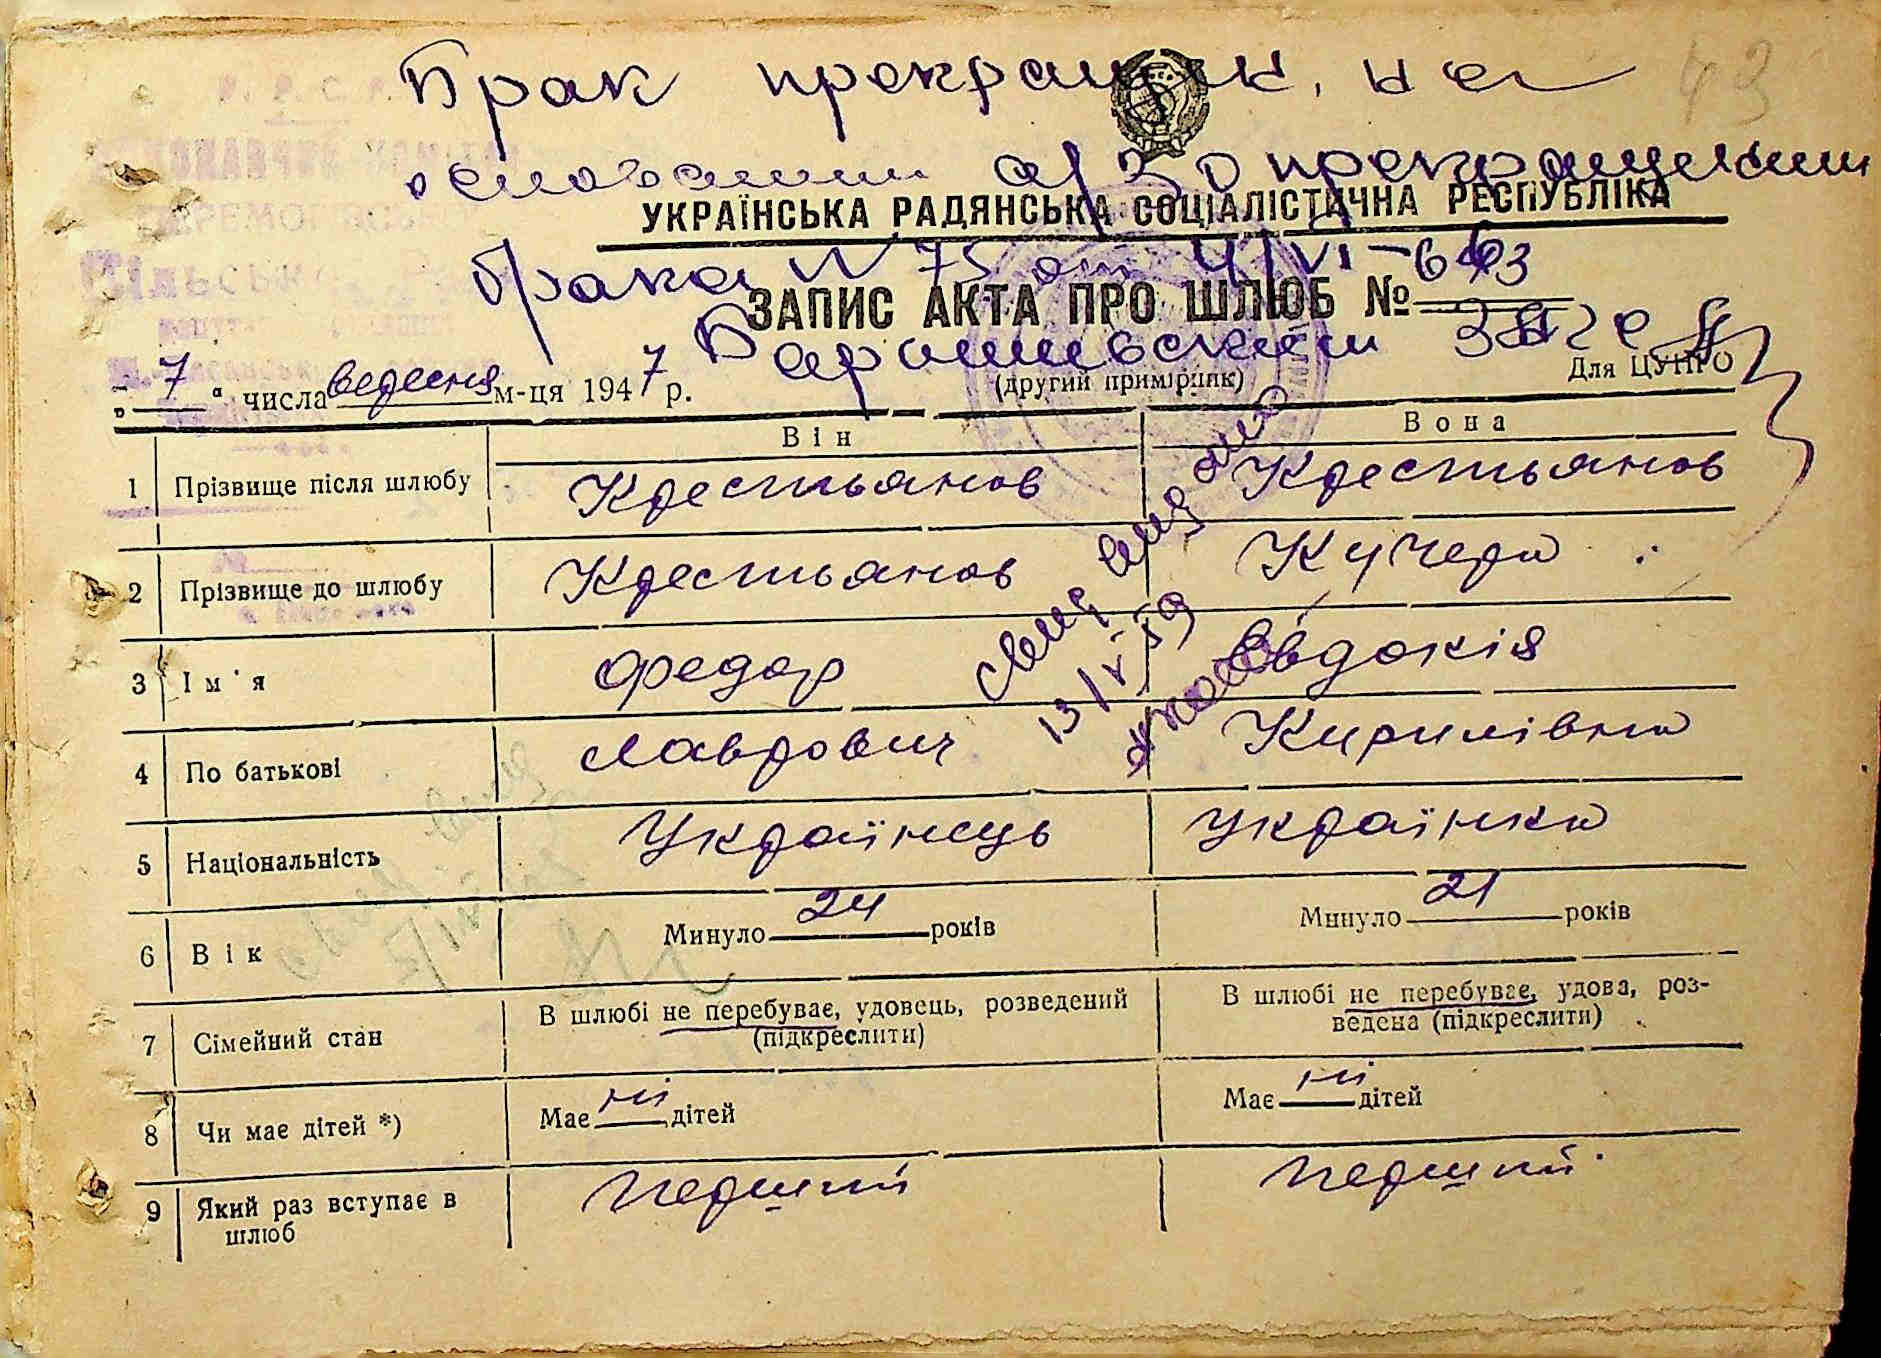 43
Брак прекращен, на
основании а/з о прекращении
УКРАЇНСЬКА РАДЯНСЬКА СОЦІАЛІСТИЧНА РЕСПУБЛІКА
брака N 75 от 4/VI-66
ЗАПИС АКТА ПРО ШЛЮБ № 43
Баришевским
(другий примірник)
Для ЦУНГО
„ 7 " числа вересня м-ця 1947 р.
Він Вона
1 Прізвище після шлюбу Крестьянов Крестьянов
2 Прізвище до шлюбу Крестьянов Кучера
3 Ім'я Федор Євдокія
4 По батькові Лаврович Кирилівна
5 Національність Українець Українка
6 Вік Минуло 24 років Минуло 21 років
7 Сімейний стан В шлюбі не перебуває, удовець, розведений (підкреслити) В шлюбі не перебуває, удова, роз-
ведена (підкреслити)
8 Чи має дітей *) Має ні дітей Має ні дітей
9 Який раз вступає в Перший Перший
шлюб
13/V-59